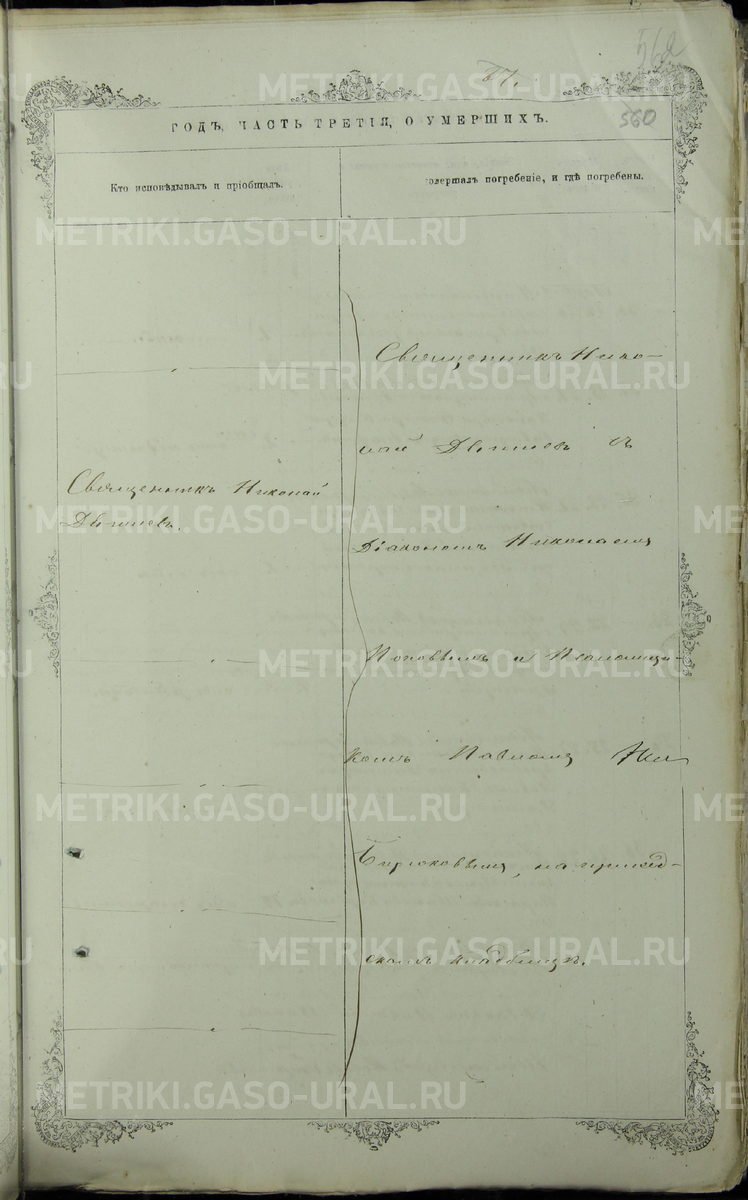 562
67.
560
ГОДЪ, ЧАСТЬ ТРЕТІЯ, О УМЕРШИХЪ.
Кто исповѣдывалъ и пріобщалъ.
совершалъ погребеніе, и гдѣ погребены.
Священникъ Нико-
лай
съ
Священникъ Николай
Діакономъ Николаемъ
Поповымъ и Псаломщи-
комъ Павломъ
Бирюковымъ, на приход-
скомъ кладбищѣ.
METRIKI.GASO-URAL.RU